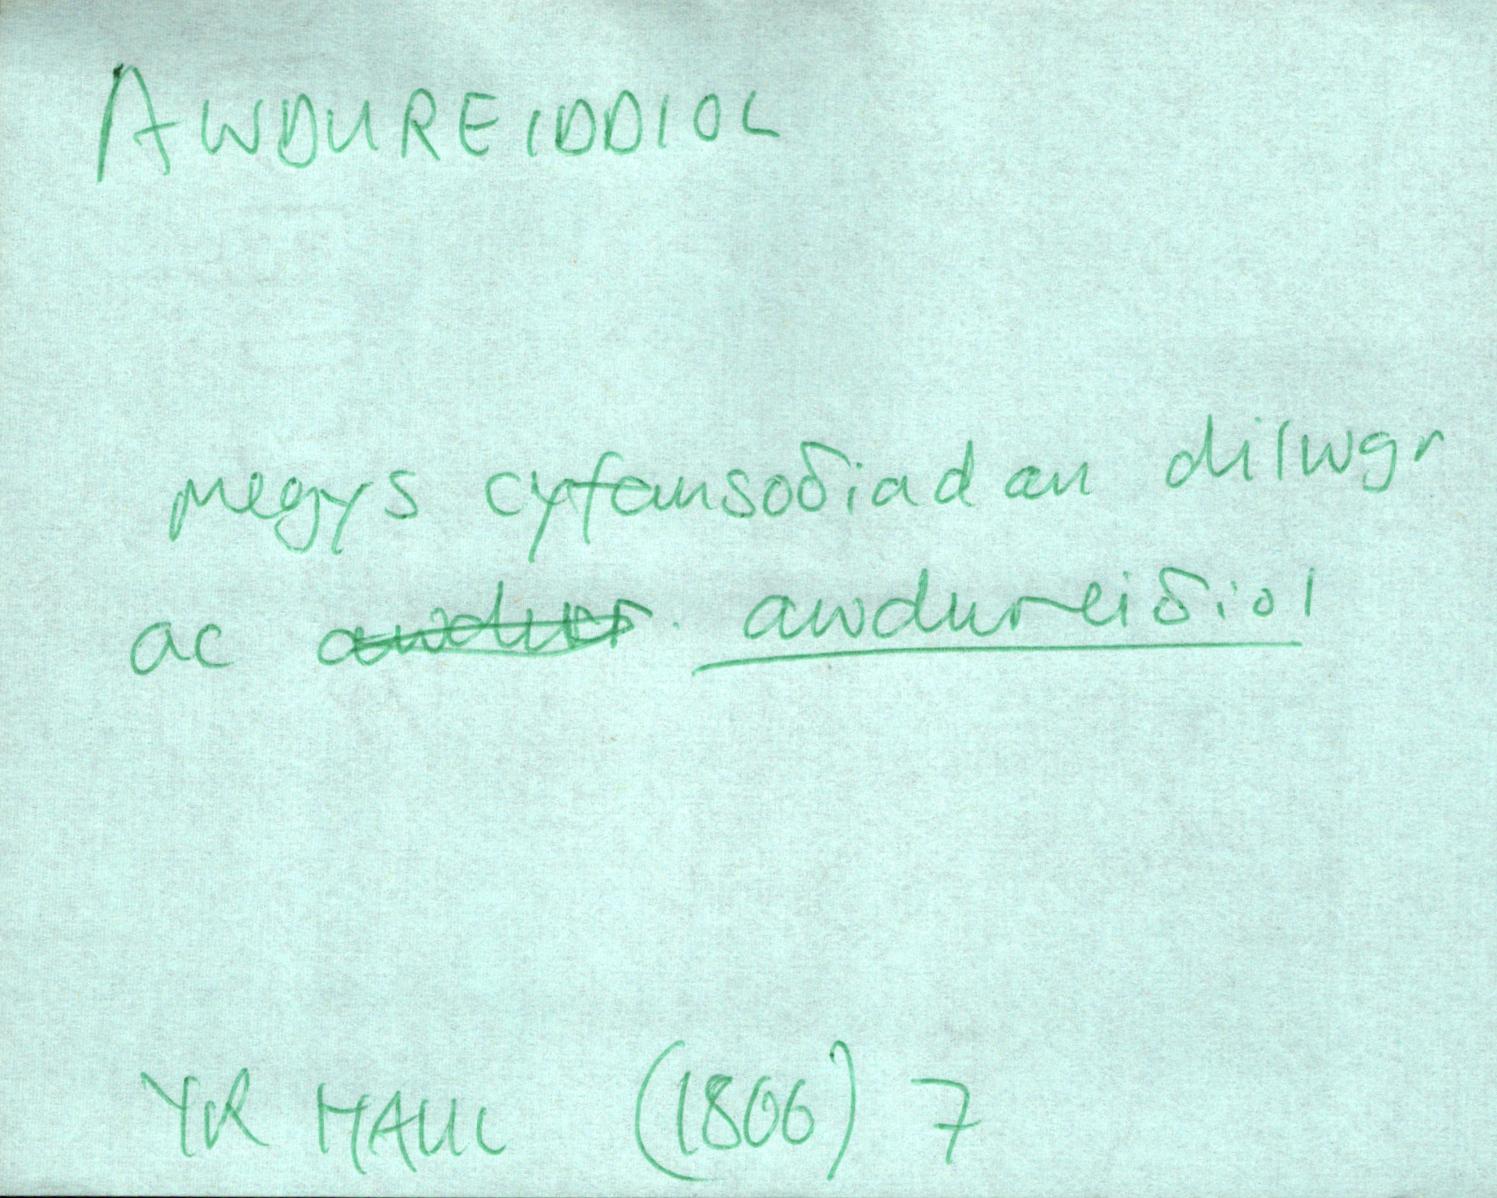 AWDUREIDDIOL
megys cyfansoδiadau dilwgr
ac awdur awdureiδiol
YR HAUL (1806) 7